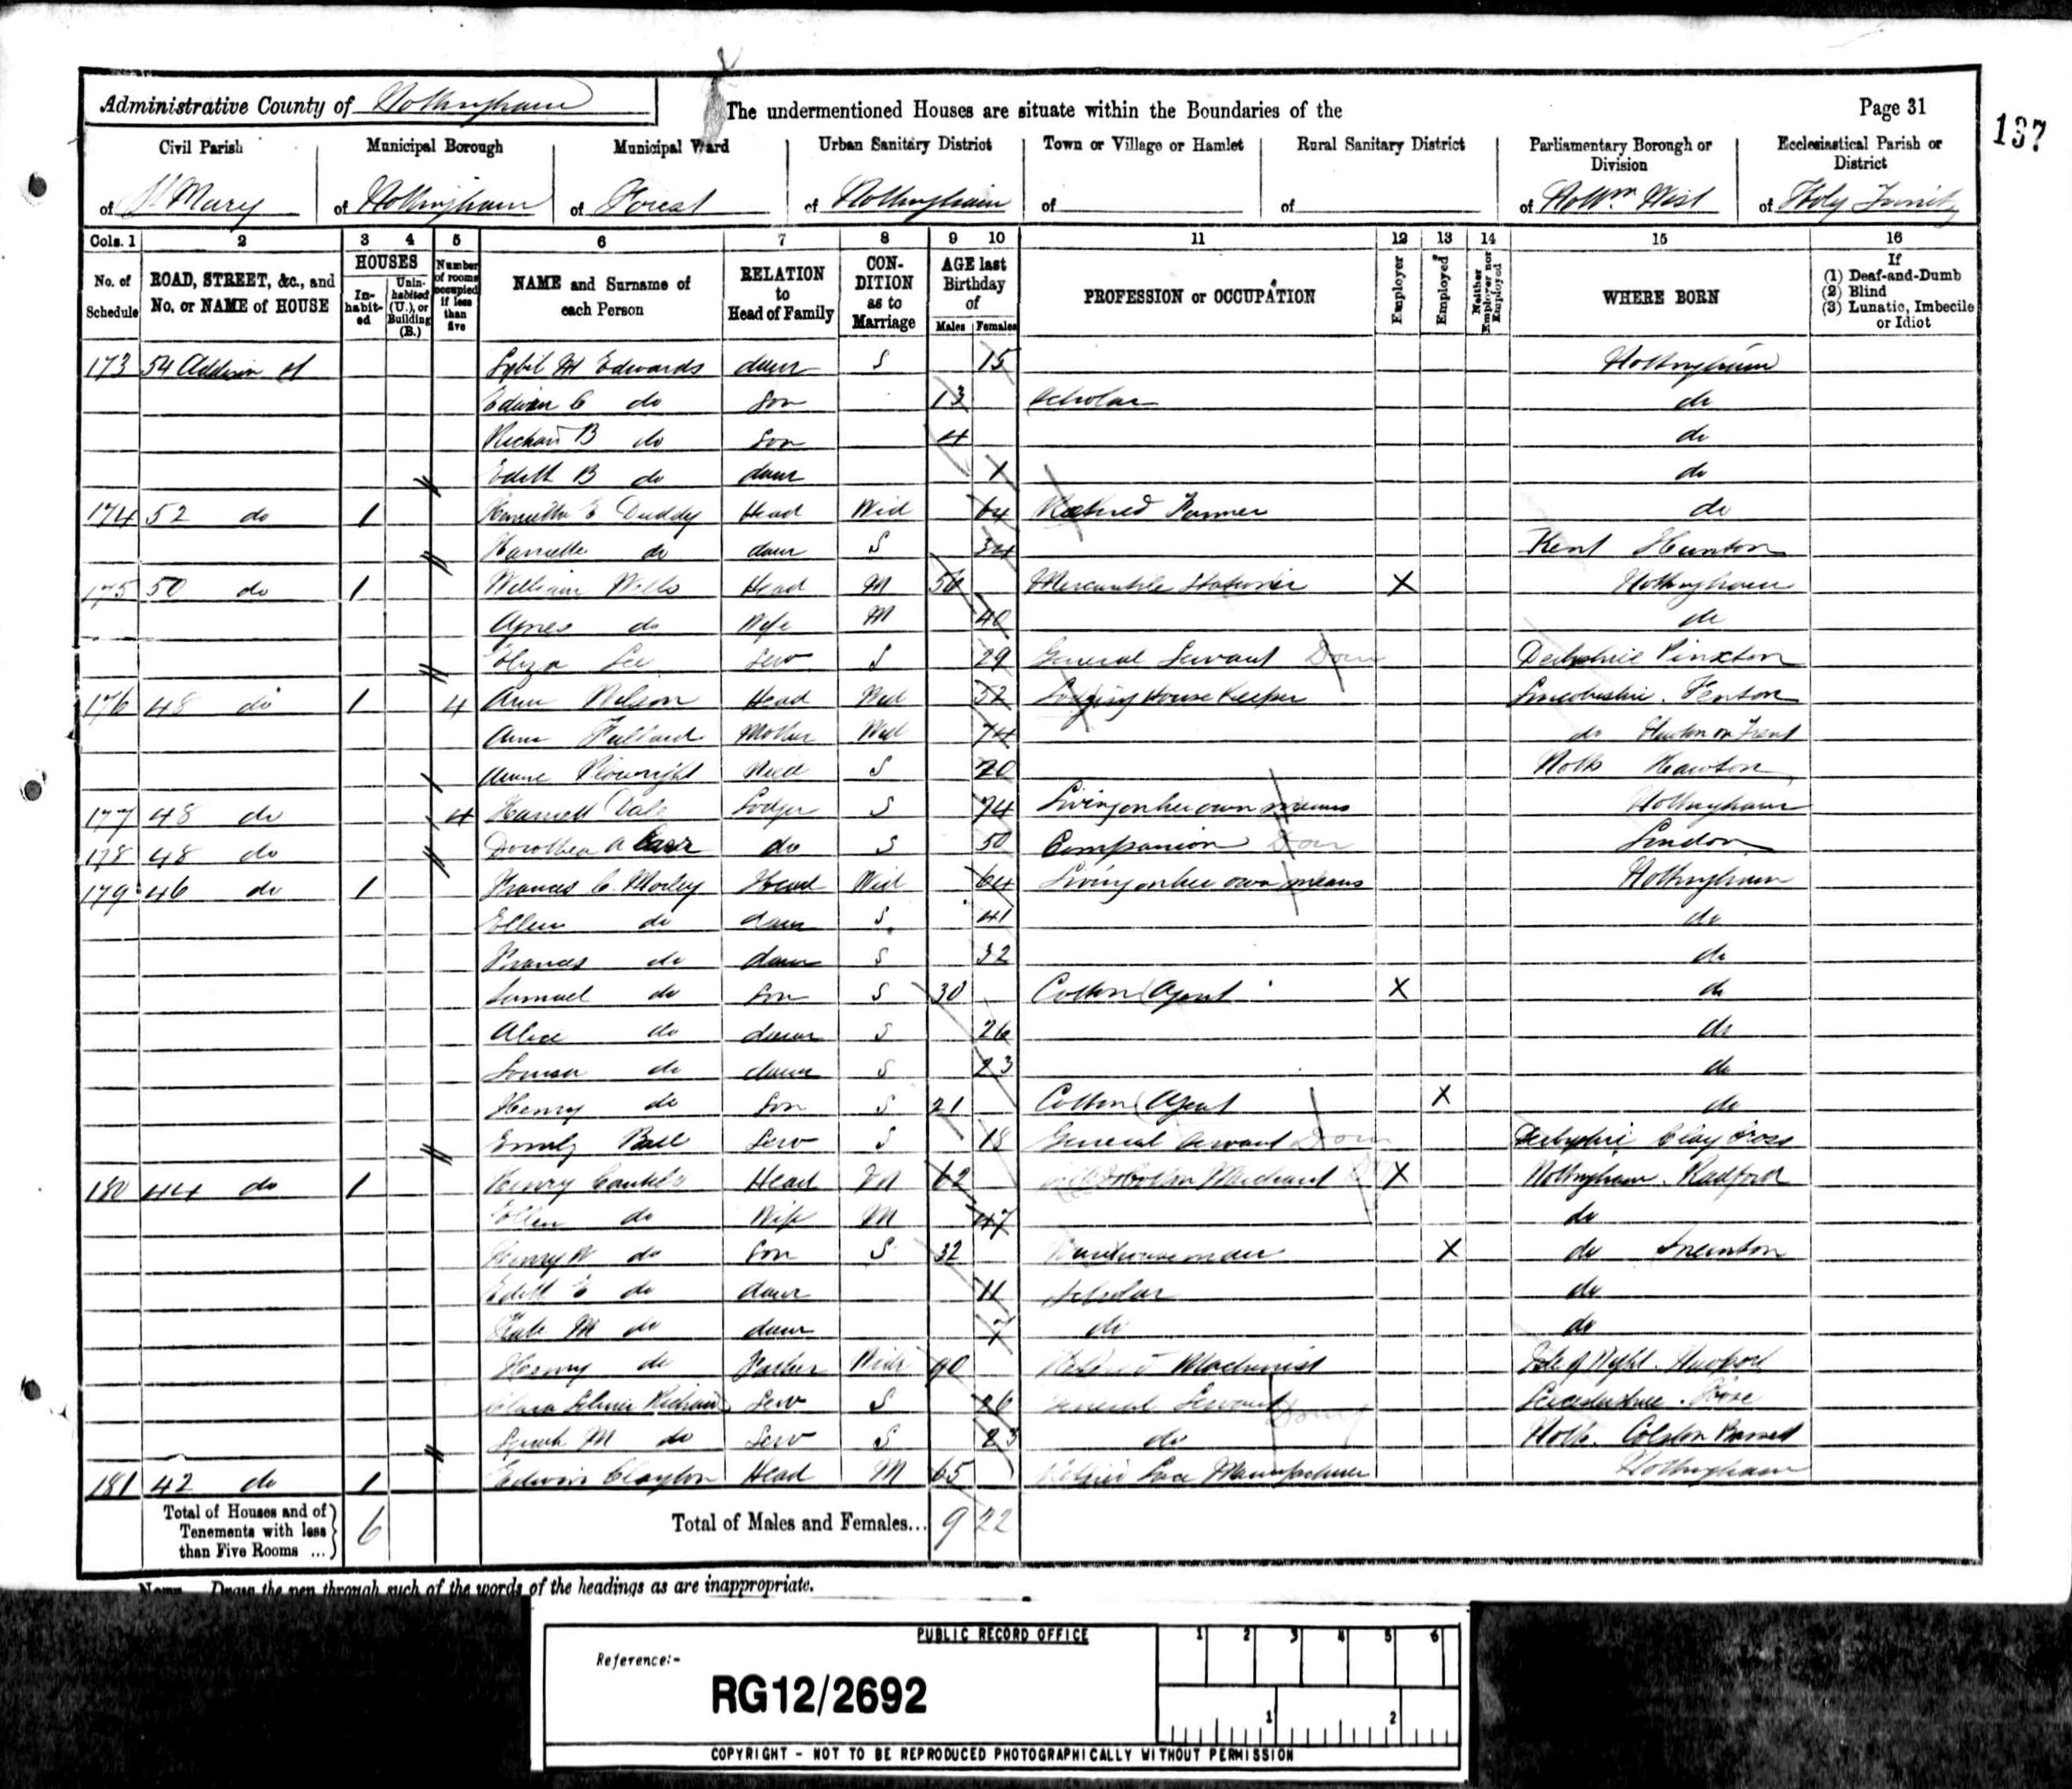 Administrative County of Nottingham
The undermentioned Houses are situate within the Boundaries of the
Page 31
137
Civil Parish Municipal Borough Municipal Ward Urban Sanitary District Town or Village or Hamlet Rural Sanitary District Parliamentary Borough or Division Ecclesiastical Parish or District
of St Mary of Nottingham of Forest of Nottingham of of of Nottm West of Holy Trinity
Cols. 1 2 3 4 5 6 7 8 9 10 11 12 13 14 15 16
No. of Schedule ROAD, STREET, &c., and No. or NAME of HOUSE HOUSES Inhabited Uninhabited (U.), or Building (B.) Number of rooms occupied if less than five NAME and Surname of each Person RELATION to Head of Family CONDITION as to Marriage AGE last Birthday of Males Females PROFESSION or OCCUPATION Employer Employed Neither Employer nor Employed WHERE BORN If (1) Deaf-and-Dumb (2) Blind (3) Lunatic, Imbecile or Idiot
173 54 Addison St Sybil M Edwards daur S 15 Nottingham
Edwin C do Son 13 Scholar do
Richard B do Son 4 do
Edith B do daur 1 do
174 52 do 1 E Duddy Head Wid 64 Retired Farmer do
do daur S 34 Kent Hunton
175 50 do 1 William Wells Head M 50 Mercantile Stationer X Nottingham
Agnes do Wife M 40 do
Eliza Lee Serv S 29 General Servant Dom Derbyshire Pinxton
176 48 do 1 4 Ann Nelson Head Wid 52 Lodging House Keeper Lincolnshire. Fenton
Ann Mother Wid 74 do on Trent
Annie S 20 Notts Hawton
177 48 do 4 Harriett Dale Lodger S 74 Living on her own means Nottingham
178 48 do Dorothea A Carr do S 50 Companion Dom London
179 46 do 1 Frances C. Morley Head Wid 64 Living on her own means Nottingham
Ellen do daur S 41 do
Frances do daur S 32 do
Samuel do Son S 30 Cotton Agent X do
Alice do daur S 26 do
Louisa do daur S 23 do
Henry do Son S 21 Cotton Agent X do
Emily Ball Serv S 18 General Servant Dom Derbyshire Clay Cross
180 44 do 1 Henry Head M 62 Cotton Merchant X Nottingham. Radford
Ellen do Wife M 47 do
Henry W do Son S 32 Warehouseman X do Sneinton
Edith E do daur 11 Scholar do
Kate M do daur 7 do do
Henry do Father Widr 90 Retired Machinist Isle of Wight. Newport
Clara Serv S 26 General Servant Leicestershire.
Sarah M do Serv S 23 do Notts. Colston Bassett
181 42 do 1 Edwin Clayton Head M 65 Retired Lace Manufacturer Nottingham
Total of Houses and of Tenements with less than Five Rooms ... 6 Total of Males and Females... 9 22
Note.— Draw the pen through such of the words of the headings as are inappropriate.
PUBLIC RECORD OFFICE
1 2 3 4 5 6
Reference:-
RG12/2692
1 2
COPYRIGHT - NOT TO BE REPRODUCED PHOTOGRAPHICALLY WITHOUT PERMISSION